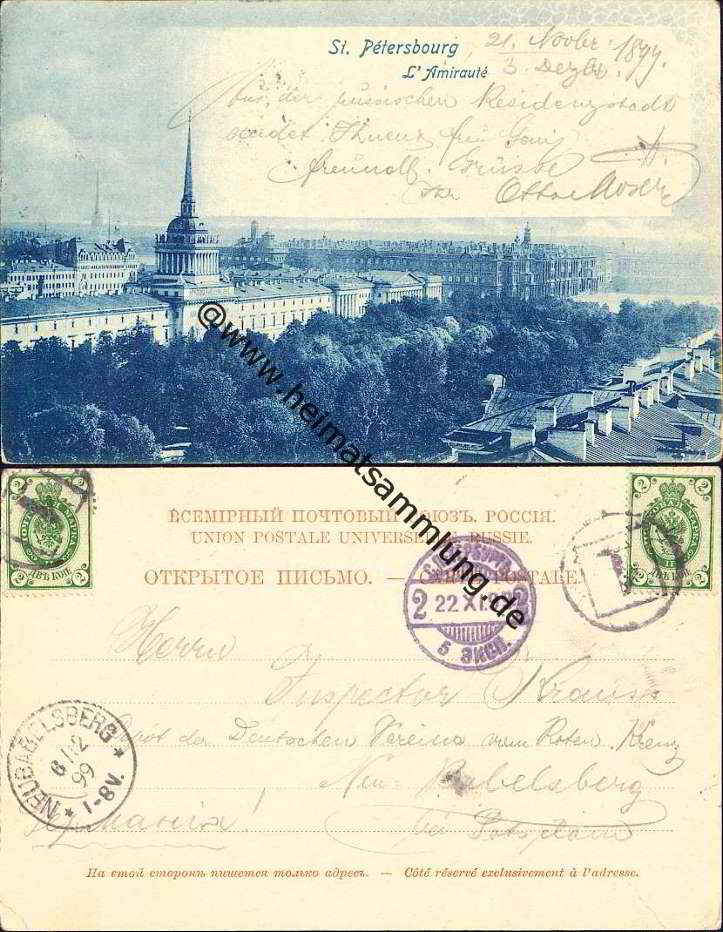 St. Pétersbourg
L'Amirauté
21. Novbr. 1899.
3. Dezbr.
Aus der russischen Residenzstadt
sendet Ihnen
freundl. Grüsse
Ihr Otto Moser
@www.heimatsammlung.de
ВСЕМІРНЫЙ ПОЧТОВЫЙ СОЮЗЪ. РОССІЯ.
UNION POSTALE UNIVERSELLE. RUSSIE.
ОТКРЫТОЕ ПИСЬМО. — CARTE POSTALE.
2 2
ДВѢ КОП.
2 2
ДВѢ КОП.
С.ПЕТЕРБУРГЪ
2 22 XI 99 2
5 ЭКСП.
1
Herrn
Inspector Krauss
Depôt der Deutschen Vereine vom Roten Kreuz
Neu-Babelsberg
Германія! bei Potsdam
NEUBABELSBERG
6/12
99
1-8V.
На этой сторонѣ пишется только адресъ. — Côté réservé exclusivement à l'adresse.